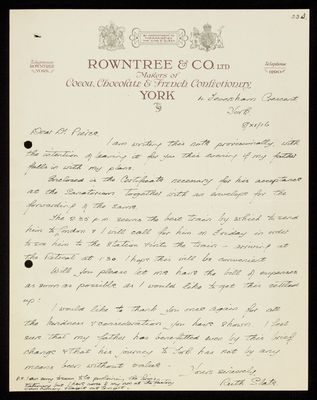 33d.
Telegrams
ROWNTREE
YORK
Telephone
ROWNTREE & CO. LTD
Makers of
Cocoa, Chocolate & French Confectionery
YORK
4 Feversham Crescent
York
Dear Dr Pierce
I am writing this note provisionally, with
the intention of leaving it for you this evening if my father
falls in with my plans.
Enclosed is the Certificate necessary for his acceptance
at the Sanatorium together with an envelope for the
forwarding of the same.
The 2.35 p.m. seems the best train by which to send
him to London & I will call for him on Friday in order
to see him to the Station & into the train – arriving at
the Retreat at 1.30. I hope this will be convenient
Will you please let me have the bill of expenses
as soon as possible as I would like to get this settled
up.
I would like to thank you once again for all
the kindness & consideration you have shown. I feel
sure that my father has benefitted even by this brief
change & that his journey to York has not by any
means been without value.
Yours sincerely
Ruth Slate
P.S. I am sorry to use
but I have none of my own at the factory